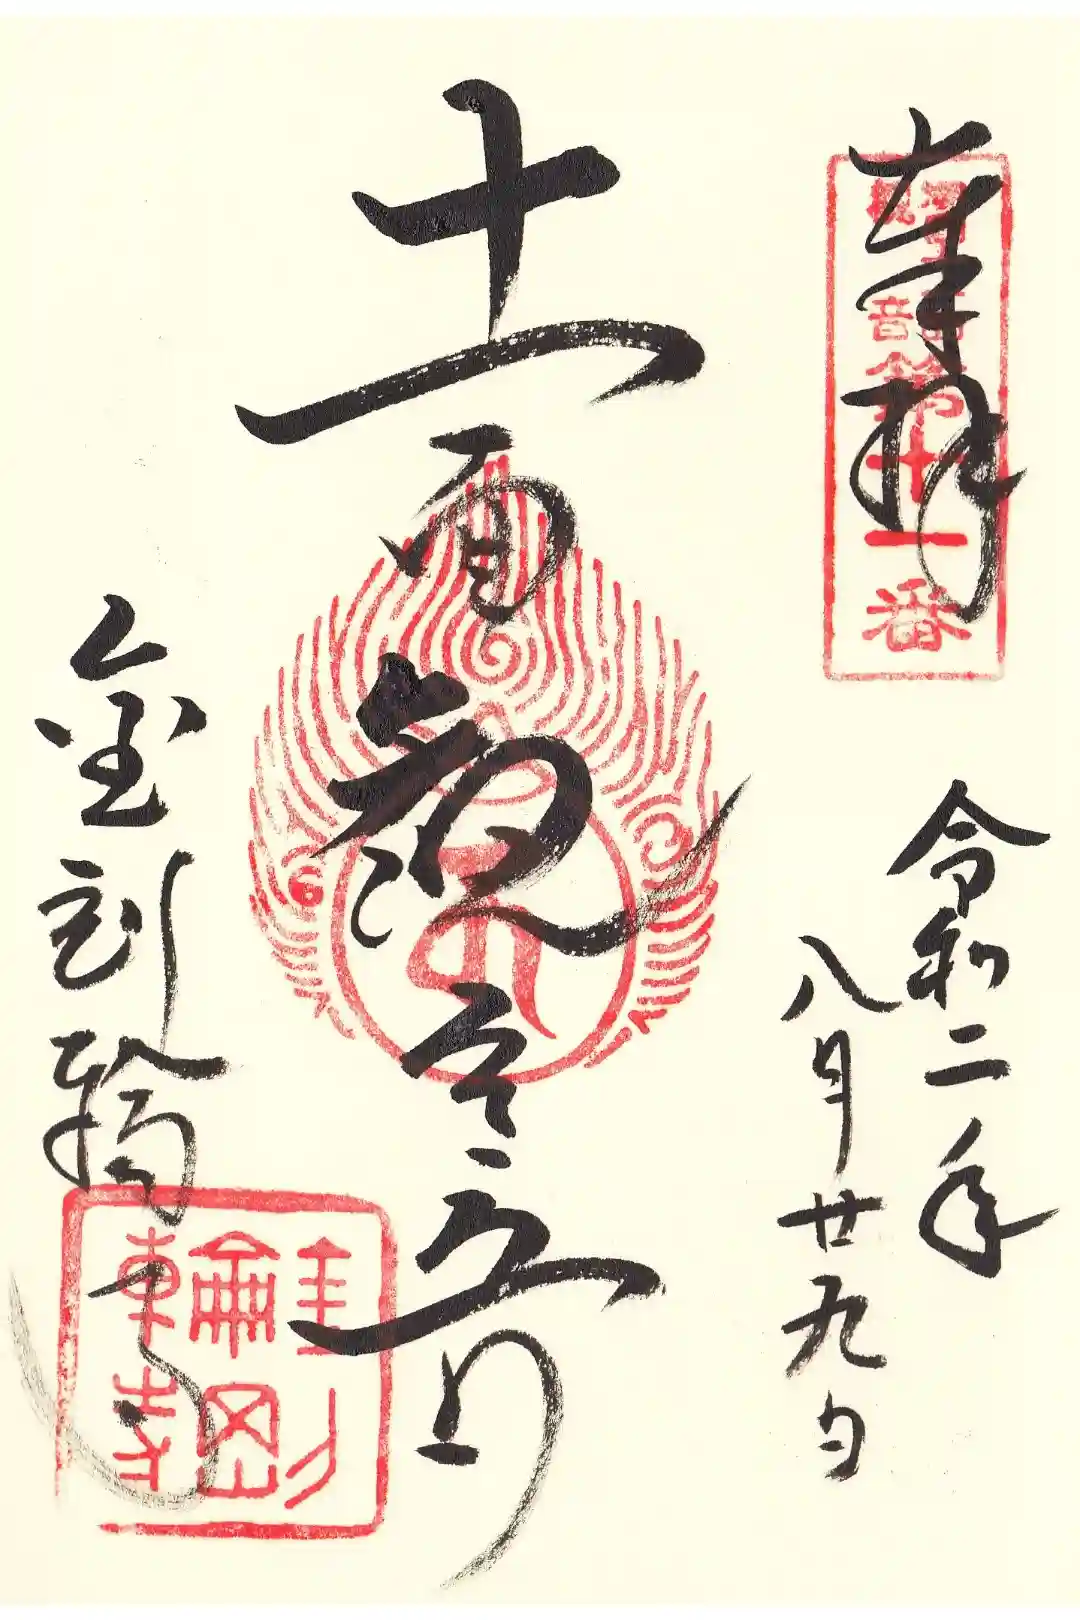 奉拝
第十一番
令和二年
八月廿九日
十一面観世音
金剛輪寺
金剛輪寺